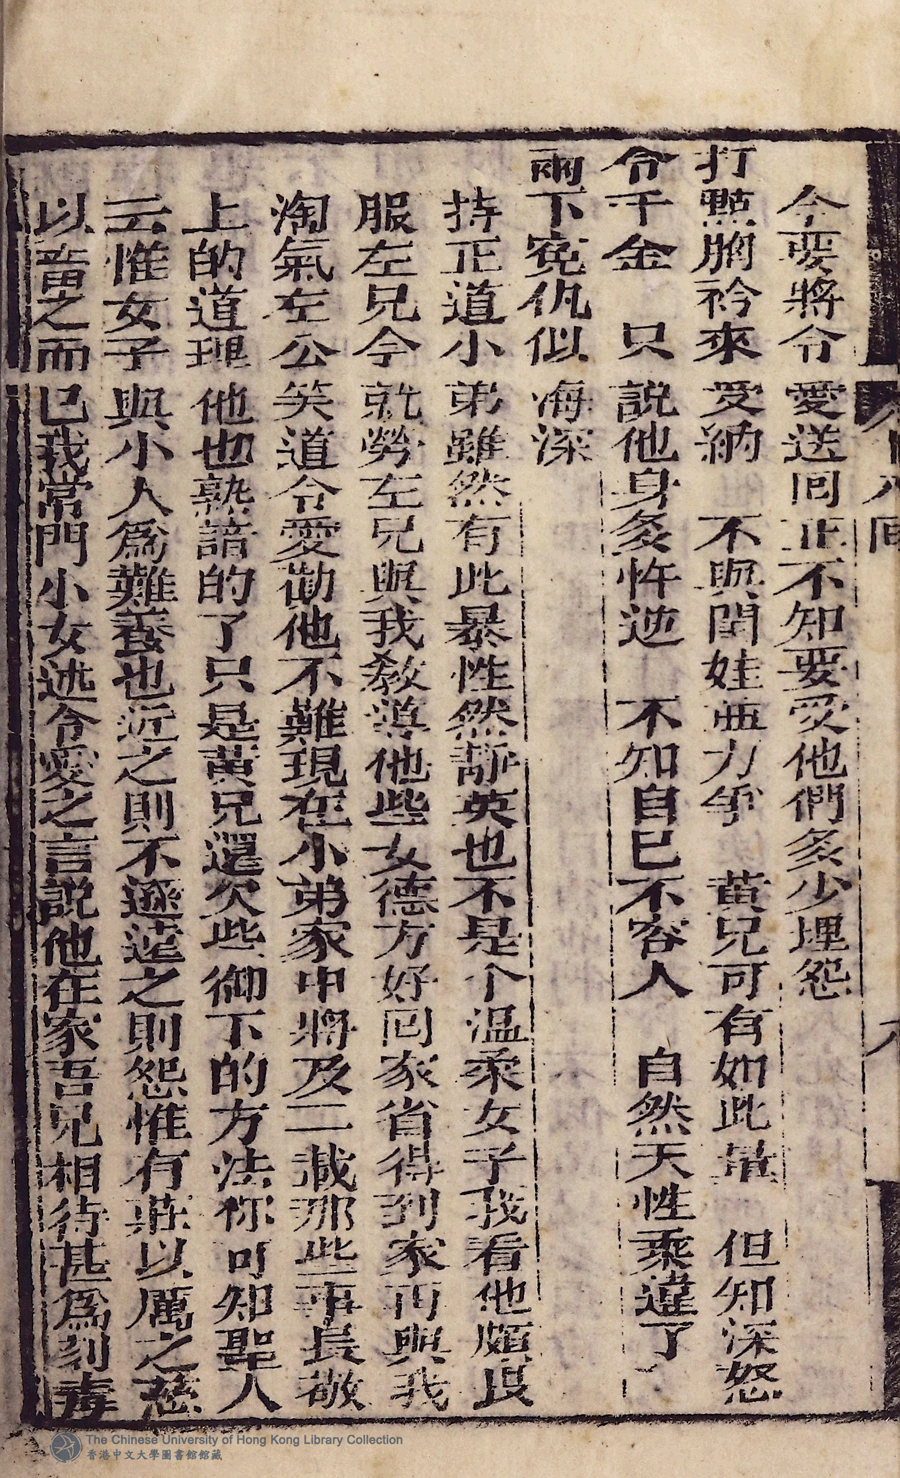 今要將令愛送回正不知要受他們多少埋怨
打點胸衿來受納 不與閨娃要力爭 黃兄可有如此量 但知深怒
令千金 只說他身多忤逆 不知自己不容人 自然天性乘違了
兩下寃仇似海深
持正道小弟雖然有此暴性然静英也不是个温柔女子我看他頗良
服左兄今就勞左兄與我教導他些女德方好回家省得到家再與我
淘氣左公笑道令愛勸他不難現在小弟家中將及二載那些事長敬
上的道理他也熟諳的了只是黃兄還欠些御下的方法祢可知聖人
云惟女子與小人爲難養也近之則不遜遠之則怨惟有莊以厲之慈
以畜之而已我常門小女述令愛之言說他在家吾兄相待甚爲刻毒
十八回
八
The Chinese University of Hong Kong Library Collection
香港中文大學圖書館館藏